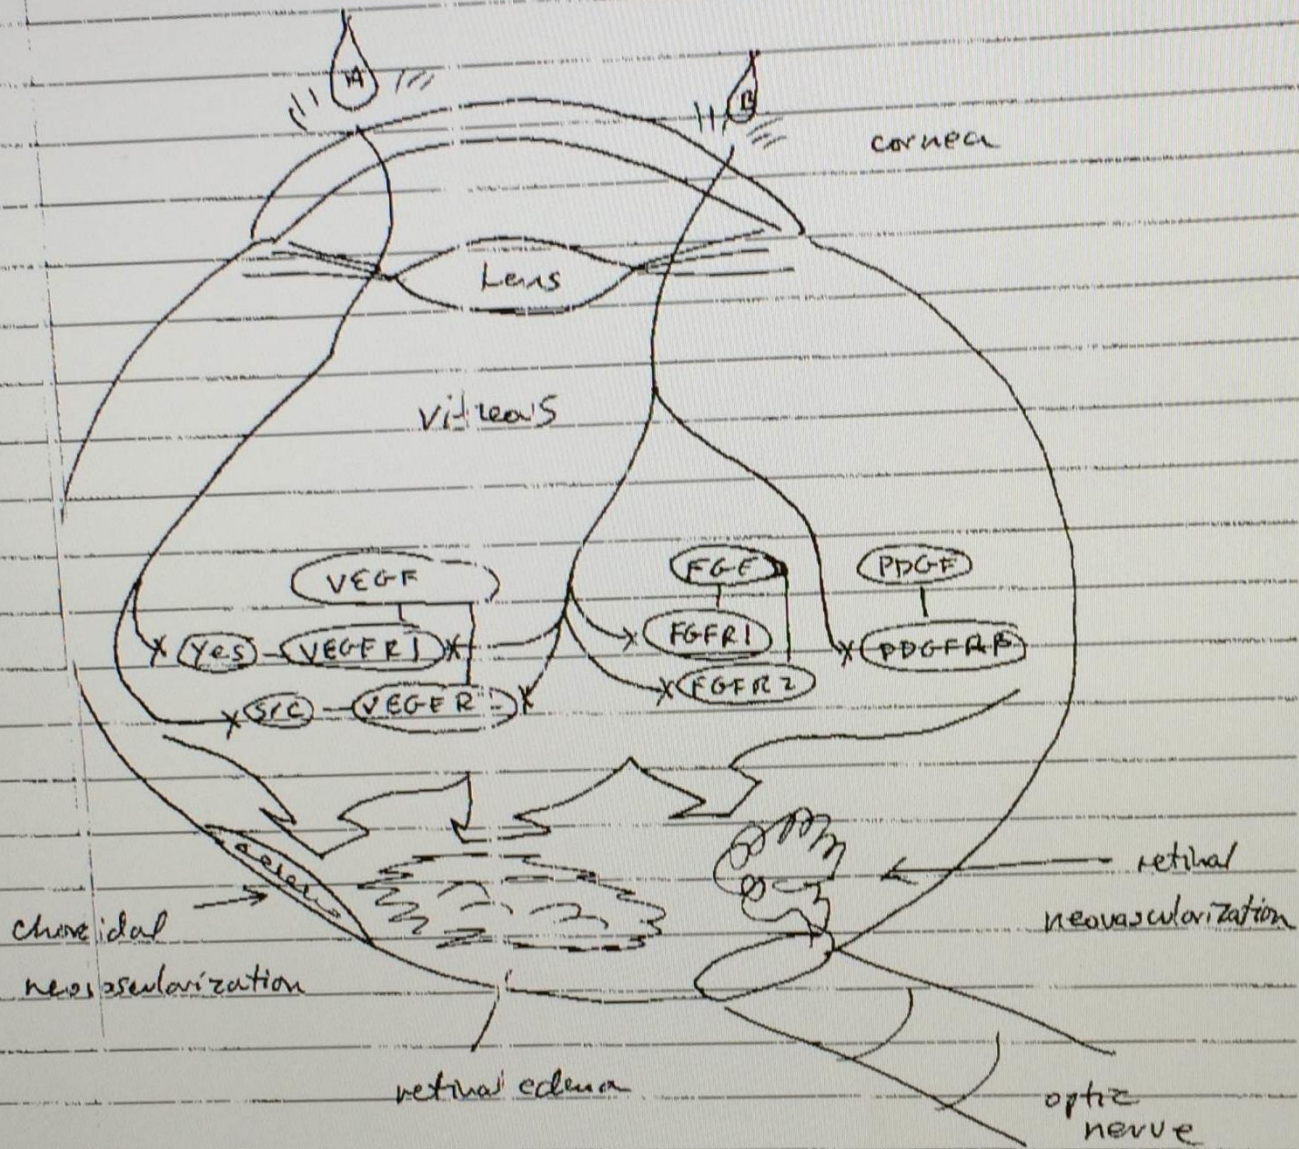 A
B
cornea
Lens
Vitreous
VEGF
FGF
PDGF
Yes
VEGFR1
FGFR1
PDGFRB
Src
VEGFR
FGFR2
retinal
neovascularization
choroidal
neovascularization
retinal edema
optic
nerve